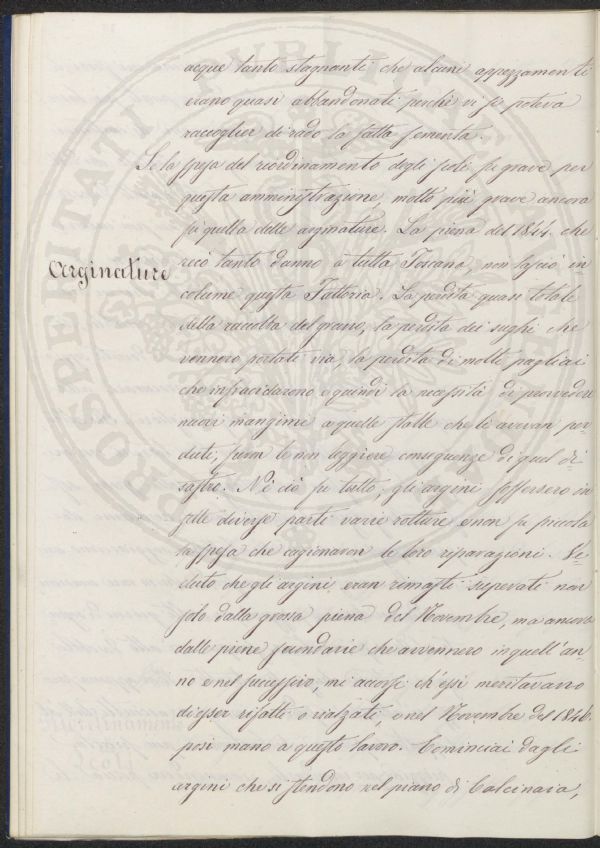 acque tanto stagnanti che alcuni appezzamenti
erano quasi abbandonati perchè vi si poteva
raccoglier di rado la fatta sementa.
Se la spesa del riordinamento degli scoli fu grave per
questa amministrazione, molto più grave ancora
fu quella delle arginature. La piena del 1844. che
Arginature
recò tanto danno a tutta Toscana, non lasciò in
colume questa Fattoria. La perdita quasi totale
della raccolta del grano, la perdita dei sughi che
vennero portati via, la perdita di molti pagliai
che infracidarono e quindi la necessità di provvedere
nuovi mangimi a quelle stalle che li avevan per
duti, furon le non leggiere conseguenze di quel di=
sastro. Nè ciò fu tutto, gli argini soffersero in
sette diverse parti varie rotture e non fu piccola
la spesa che cagionaron le loro riparazioni. Ve=
duto che gli argini eran rimasti superati non
solo dalla grossa piena del Novembre, ma ancora
dalle piene secondarie che avvennero in quell'an=
no e nel successivo, mi accorsi ch'essi meritavano
di esser rifatti o rialzati, e nel Novembre del 1846.
posi mano a questo lavoro. Cominciai dagli
argini che si stendono nel piano di Calcinaia,
PROSPERITATI PUBLICAE